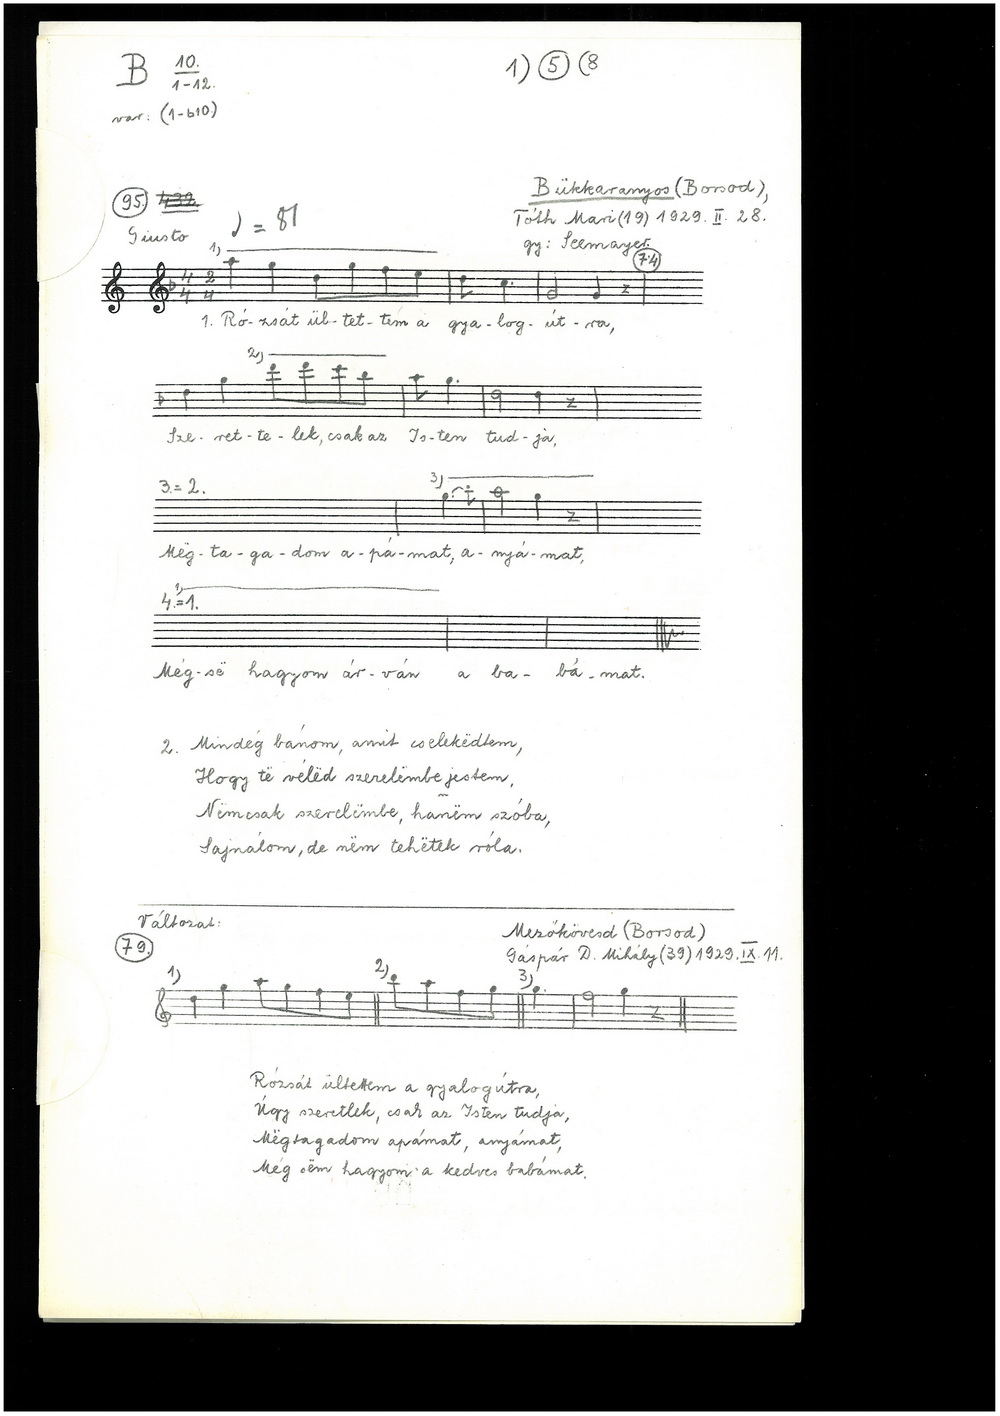 B 10. 1) 5 (8
1-12.
var: (1-b10)
95. 432.
Bükkaranyos (Borsod),
Tóth Mari (19) 1929. II. 28.
Giusto ♩ = 81
gy: Seemayer.
1) 7.4
4 2
4 4
1. Ró-zsát ül-tet-tem a gya-log-út-ra,
2)
Sze-ret-te-lek, csak az Is-ten tud-ja,
3)
3.=2.
Mëg-ta-ga-dom a-pá-mat, a-nyá-mat,
1)
4.=1.
Még-së hagyom ár-ván a ba-bá-mat.
2. Mindég bánom, amit cselekëdtem,
Hogy të vélëd szerelëmbe jestem,
Nëmcsak szerelëmbe, hanëm szóba,
Sajnálom, de nëm tehëtek róla.
Változat:
79.
Mezőkövesd (Borsod)
Gáspár D. Mihály (39) 1929. IX. 11.
1) 2) 3)
Rózsát ültettem a gyalogútra,
Úgy szeretlek, csak az Isten tudja,
Mëgtagadom apámat, anyámat,
Még sëm hagyom a kedves babámat.